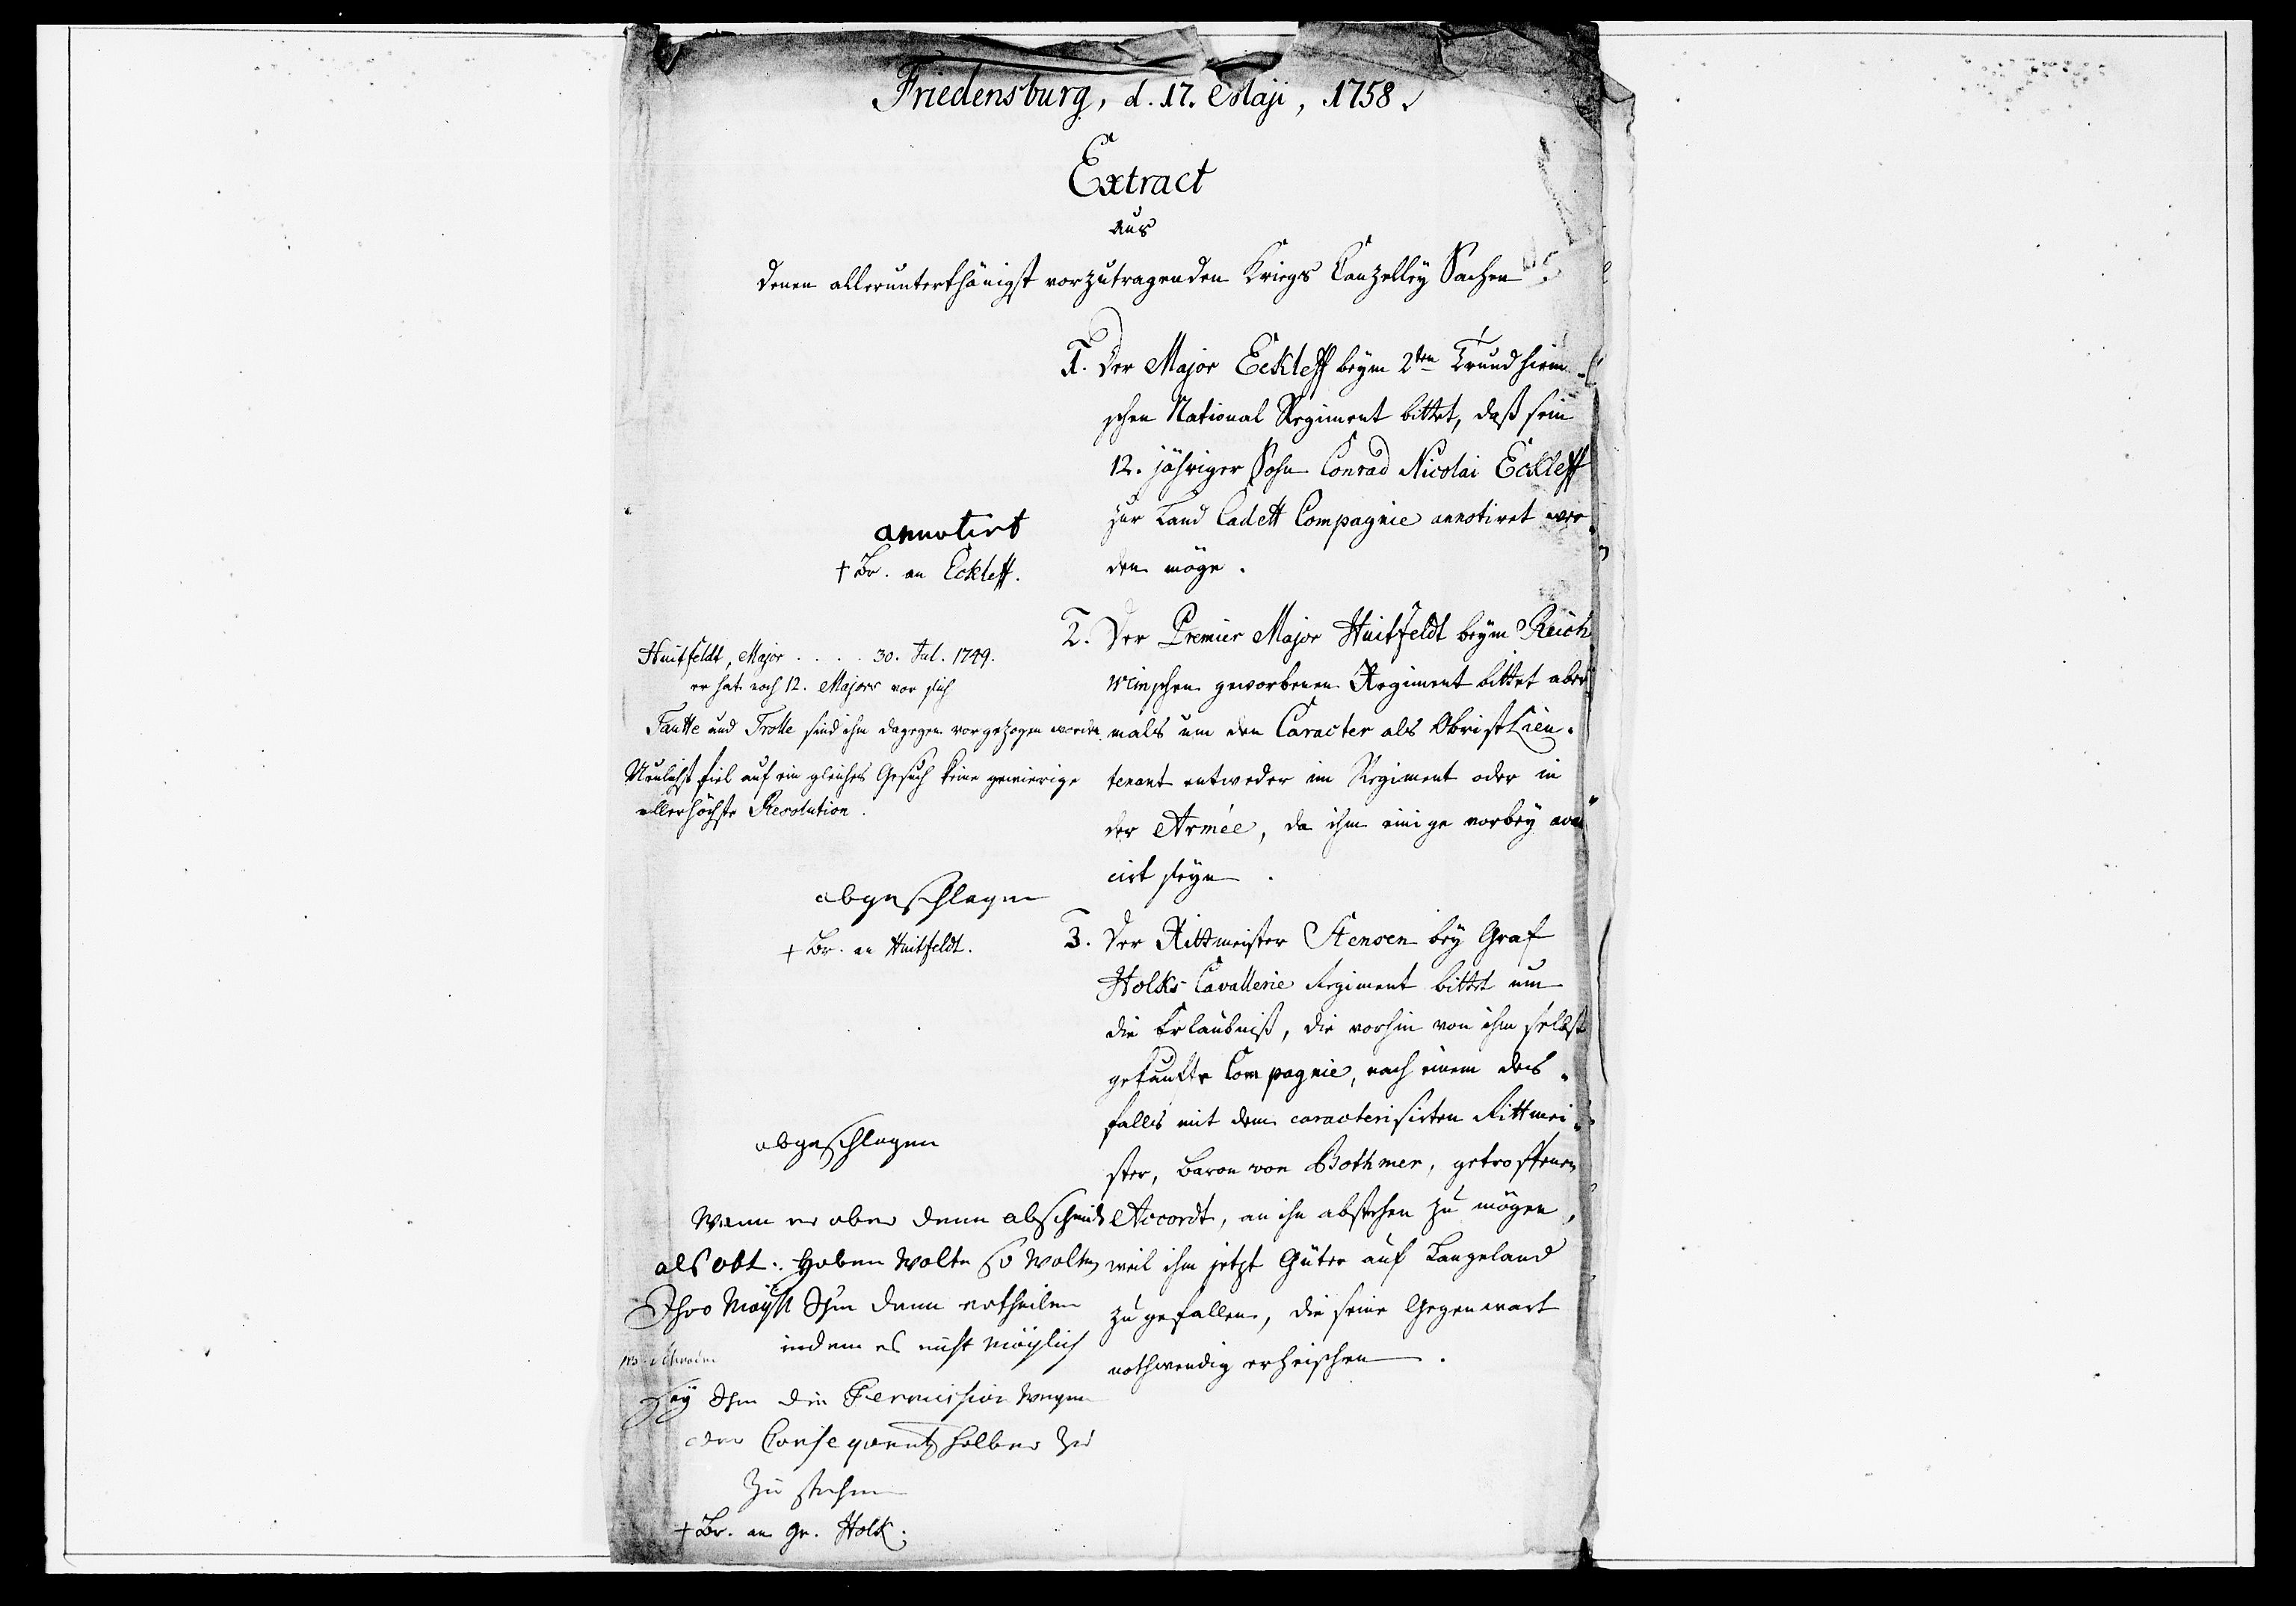 Friedensburg, d. 17. Maji, 1758.
Extract
aus
denen allerunterthänigst vorzutragenden Kriegs Canzelley Sachen
1. Der Major Eckleff beym 2ten Trundhiem-
schen National Regiment bittet, daß sein
12. jähriger Sohn Conrad Nicolai Eckleff
zur Land Cadett Compagnie annotiret wer-
den möge.
annotirt
† Br. an Eckleff.
2. Der Premier Major Huitfeldt beym Reich
weinschen geworbenen Regiment bittet aber
mals um den Caracter als Obrist Lieu-
tenant entweder im Regiment oder in
der Armée, da ihm einige vorbey avan
cirt seyn.
Huitfeldt, Major . . . . 30. Jul. 1749.
er hat noch 12. Majors vor sich
Tautte und Trolle sind ihm dagegen vorgezogen worden.
Neulichst fiel auf ein gleiches Gesuch keine gewierige
allerhöchste Resolution.
abgeschlagen
† Br. an Huitfeldt.
3. Der Rittmeister Stensen bey Graf
Holks Cavallerie Regiment bittet um
die Erlaubniß, die vorhin von ihm selbst
gekaufte Compagnie, nach einem des-
falls mit dem caracterisirten Rittmei-
ster, Baron von Bothmer, getroffenen
Accordt, an ihn abstehen zu mögen,
weil ihm jetzt Güter auf Langeland
zugefallen, die seine Gegenwart
nothwendig erheischen.
abgeschlagen
Wann er aber denn abscheidt
als obt. haben wolte so wolten
Ihro Mayst Ihm denn ertheilen
indem es nicht möglich
sey Ihm die Permission wegen
der Consequentz halber zu
zu stehen
† Br. an Gr. Holk.